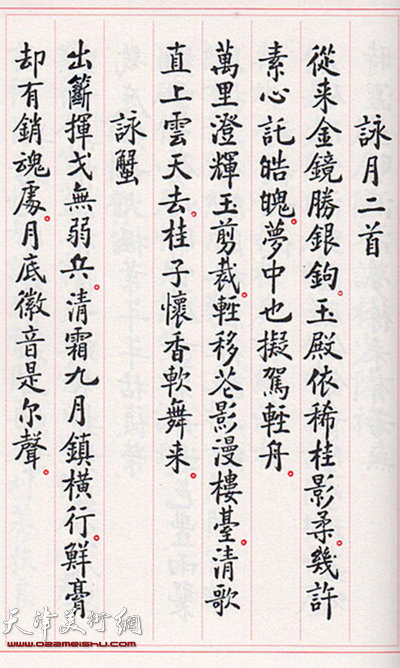 詠月二首
從来金鏡勝銀鉤。玉殿依稀桂影柔。幾許
素心託皓魄。夢中也擬駕輕舟。
萬里澄輝玉剪裁。輕移花影漫樓臺。清歌
直上雲天去。桂子懷香軟舞来。
詠蟹
出籪揮戈無弱兵。清霜九月鎮橫行。鮮膏
却有銷魂處。月底徽音是尔聲。
天津美術網
www.022meishu.com